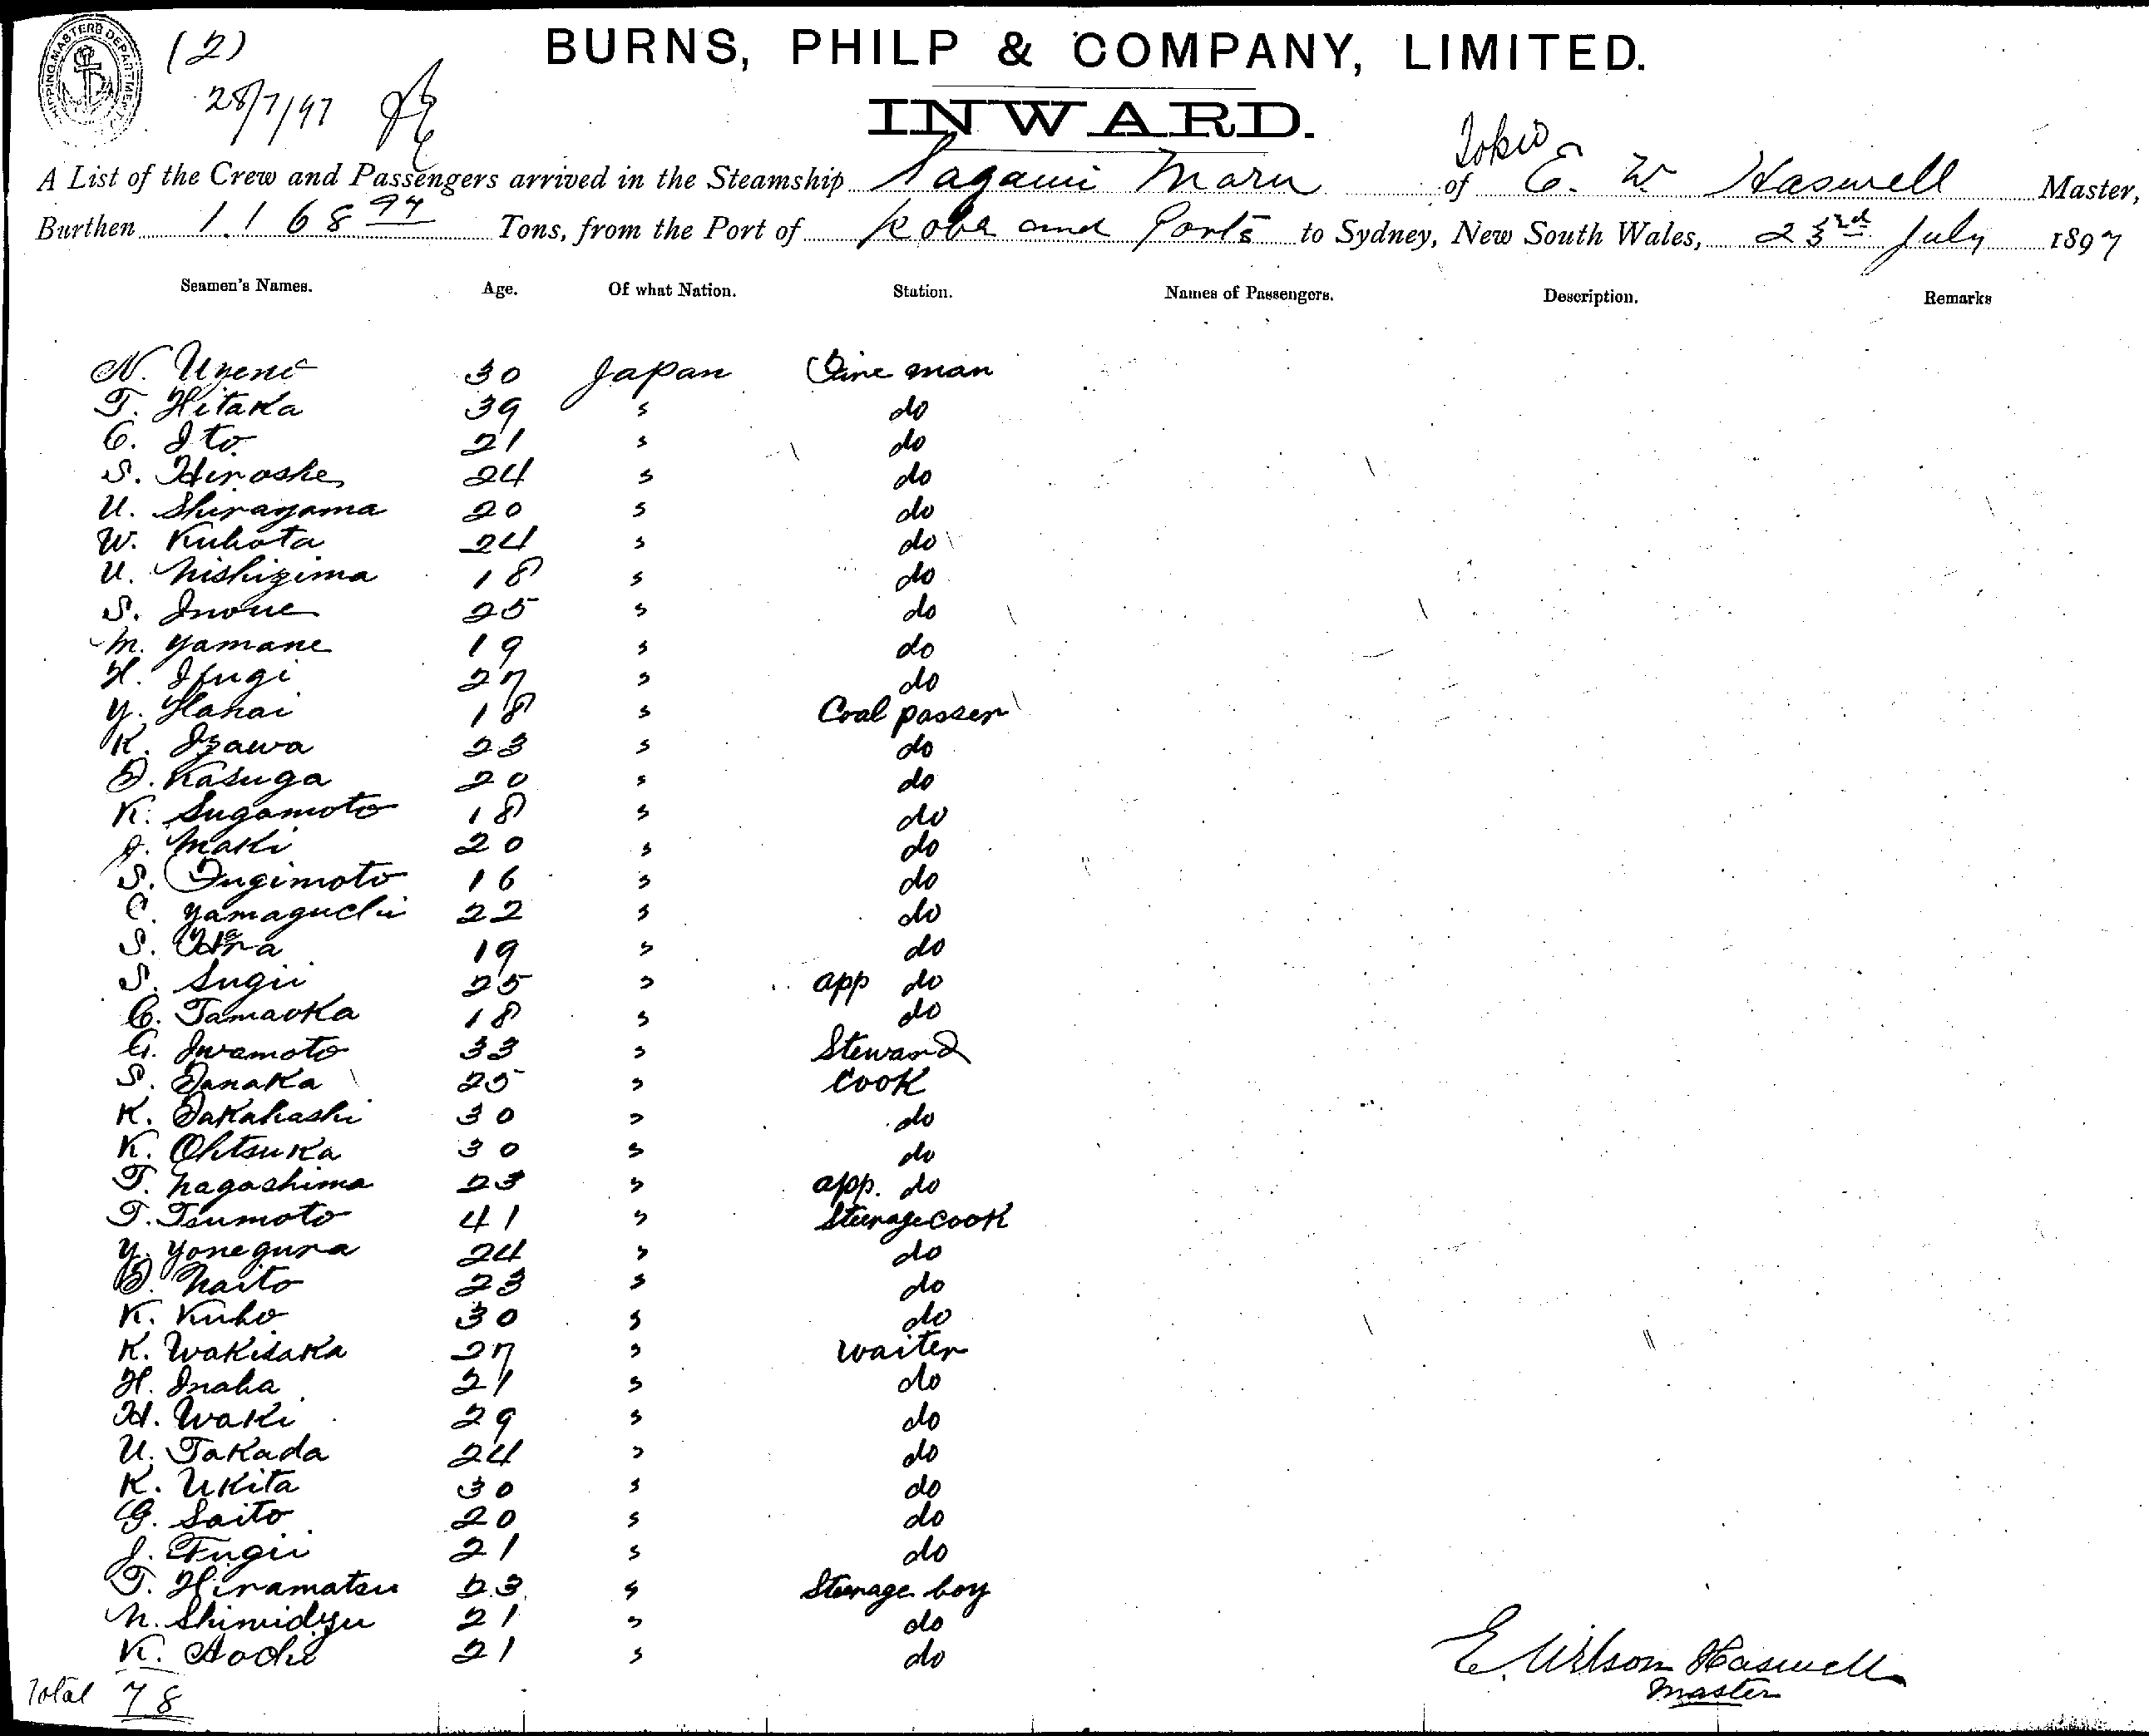 SHIPPING MASTERS DEPARTMENT
(2)
28/7/97
BURNS, PHILP & COMPANY, LIMITED.
INWARD.
A List of the Crew and Passengers arrived in the Steamship Sagami Maru of Tokio E. W Haswell Master,
Burthen 1.168 94 Tons, from the Port of Kobe and Ports to Sydney, New South Wales, 23rd July 1897
Seamen's Names. Age. Of what Nation. Station. Names of Passengers. Description. Remarks
N. Uyeno 30 Japan Fire man
T. Hitaka 39 " do
C. Ito 21 " do
S. Hiroshe 24 " do
U. Shirayama 20 " do
W. Kubota 24 " do
U. Nishizima 18 " do
S. Inoue 25 " do
M. Yamane 19 " do
H. Ifugi 27 " do
Y. Hanai 18 " Coal passer
K. Izawa 23 " do
T. Kasuga 20 " do
K. Sugamoto 18 " do
J. Maki 20 " do
S. Fugimoto 16 " do
C. Yamaguchi 22 " do
S. Hara 19 " do
S. Sugii 25 " app do
C. Tamaoka 18 " do
G. Iwamoto 33 " Steward
S. Tanaka 25 " Cook
K. Takahashi 30 " do
K. Ohtsuka 30 " do
T. Nagashima 23 " app. do
T. Tsumoto 41 " Steerage cook
Y. Yonegura 24 " do
T. Naito 23 " do
K. Kubo 30 " do
K. Wakisaka 27 " Waiter
H. Inaba 21 " do
H. Waki 29 " do
U. Takada 24 " do
K. Ukita 30 " do
G. Saito 20 " do
J. Fugii 21 " do
T. Hiramatsu 23 " Steerage boy
N. Shimidzu 21 " do
K. Aochi 21 " do
Total 78
E. Wilson Haswell
Master